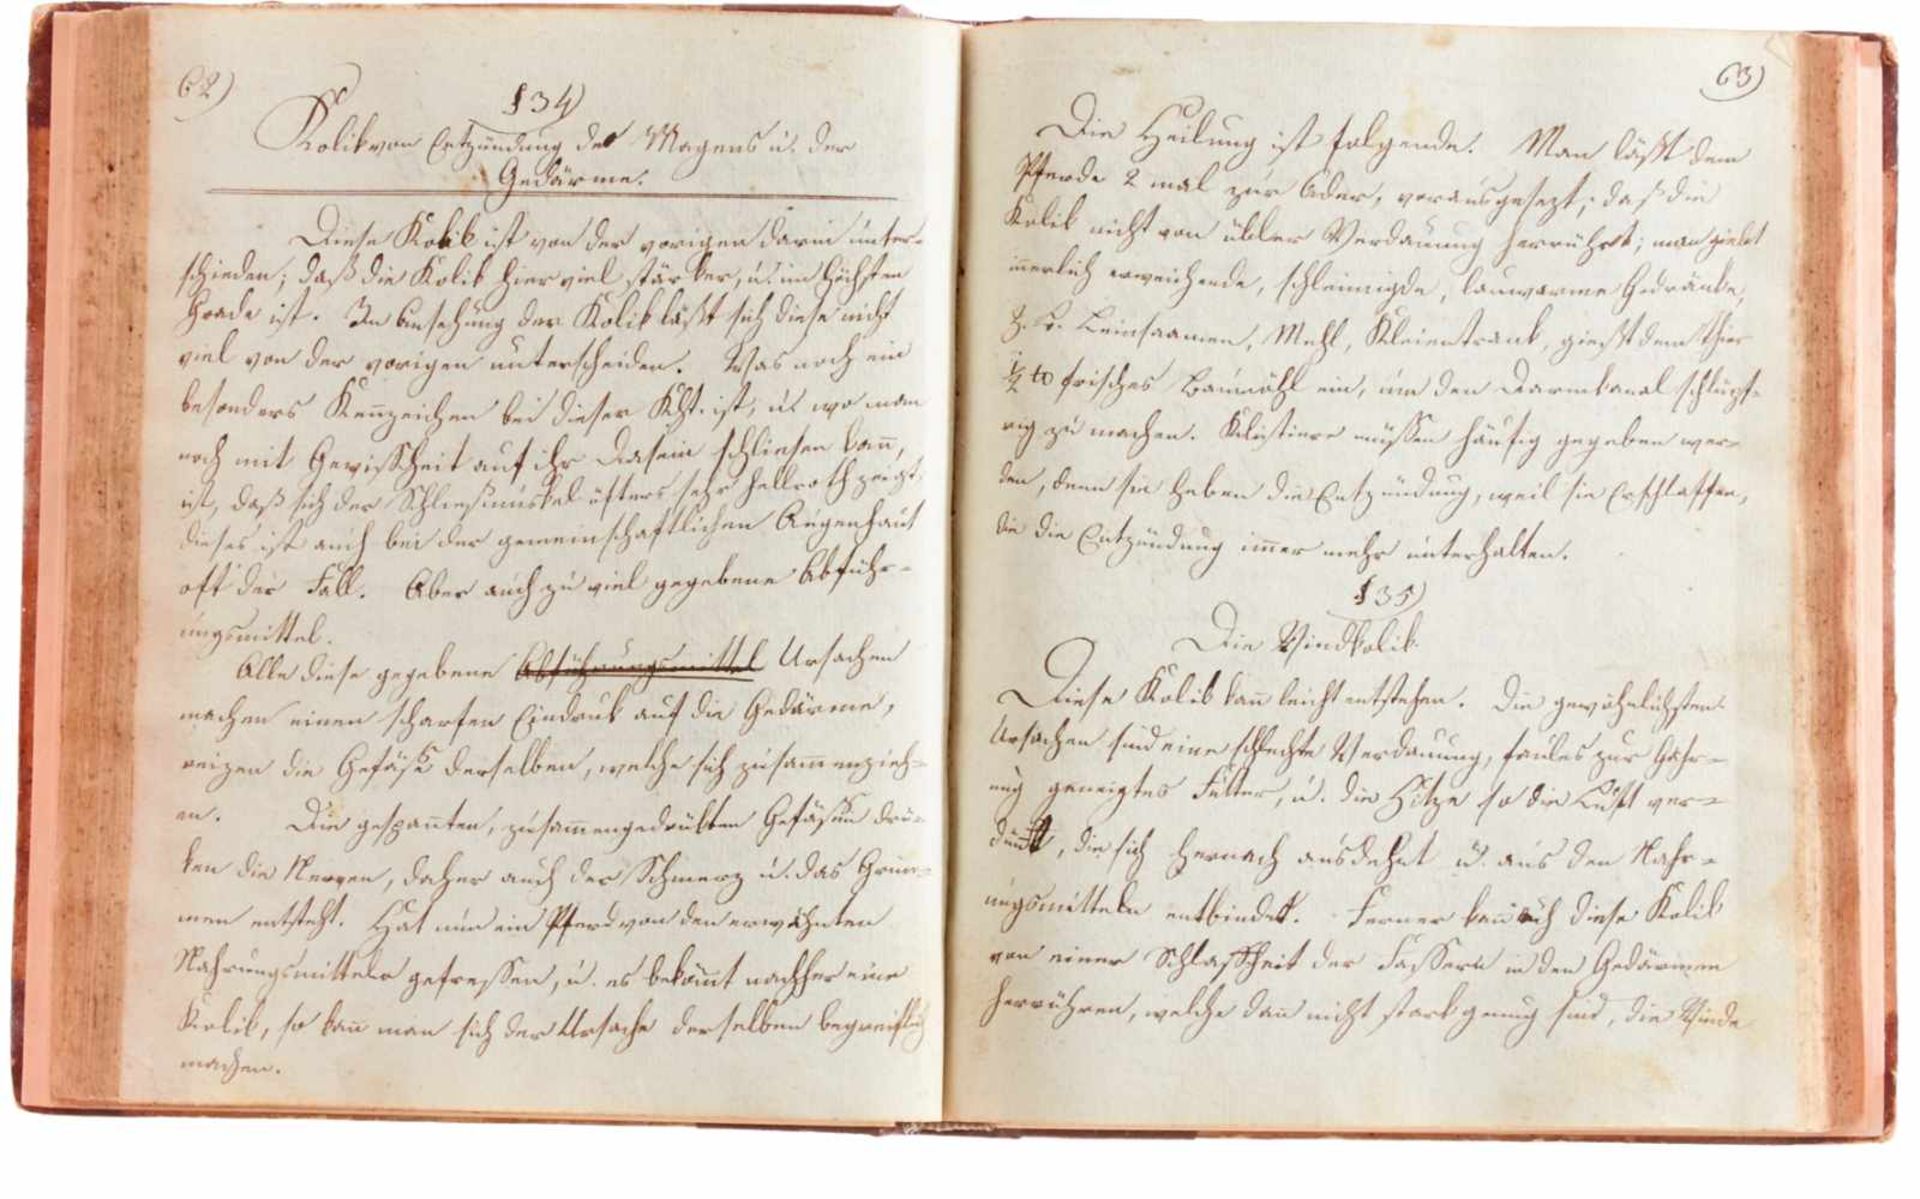 62)
§ 34)
Kolik von Entzündung des Magens u. der
Gedärme.
Diese Kolik ist von der vorigen darin unter-
schieden; daß die Kolik hier viel stärker, u. im höchsten
Grade ist. In Ansehung der Kolik läßt sich diese nicht
viel von der vorigen unterscheiden. Was noch ein
besonders Kennzeichen bei dieser Kht. ist, u. wo man
noch mit Gewißheit auf ihr Dasein schliesen kann,
ist, daß sich der Schließmuskel öfters sehr hellroth zeigt;
dieses ist auch bei der gemeinschaftlichen Augenhaut
oft der Fall. Aber auch zu viel gegebene Abführ-
ungsmittel.
Alle diese gegebene Abführungsmittel Ursachen
machen einen scharfen Eindruk auf die Gedärme,
reizen die Gefäße derselben, welche sich zusammenzieh-
en. Die gespannten, zusammengedrükten Gefäßen drü-
ken die Nerven, daher auch der Schmerz u. das Grim-
men entsteht. Hat nun ein Pferd von den erwähnten
Nahrungsmitteln gefressen, u. es bekömmt nachher eine
Kolik, so kann man sich der Ursache derselben begreiflich
machen.
63)
Die Heilung ist folgende. Man läßt dem
Pferde 2 mal zur Ader, vorausgesezt; daß die
Kolik nicht von übler Verdauung herrührt; man giebt
innerlich erweichende, schleimigde, lauwarme Gedränke,
z. B. Leinsaamen, Mehl, Kleientrank, gießt dem Thier
½ ℔ frisches Baumöhl ein, um den Darmkanal schlüpf-
rig zu machen. Klistiere müssen häufig gegeben wer-
den, denn sie heben die Entzündung, weil sie Erschlaffen,
die die Entzündung immer mehr unterhalten.
§ 35)
Die Windkolik.
Diese Kolik kann leicht entstehen. Die gewöhnlichsten
Ursachen sind eine schlechte Verdauung, faules zur Gähr-
ung geneigtes Futter, u. die Hitze so die Luft ver-
dünnt, die sich hernach ausdehnt u. aus den Nahr-
ungsmitteln entbindet. Ferner kann auch diese Kolik
von einer Schlaffheit der Fassern in den Gedärmen
herrühren, welche dann nicht stark genug sind, die Winde